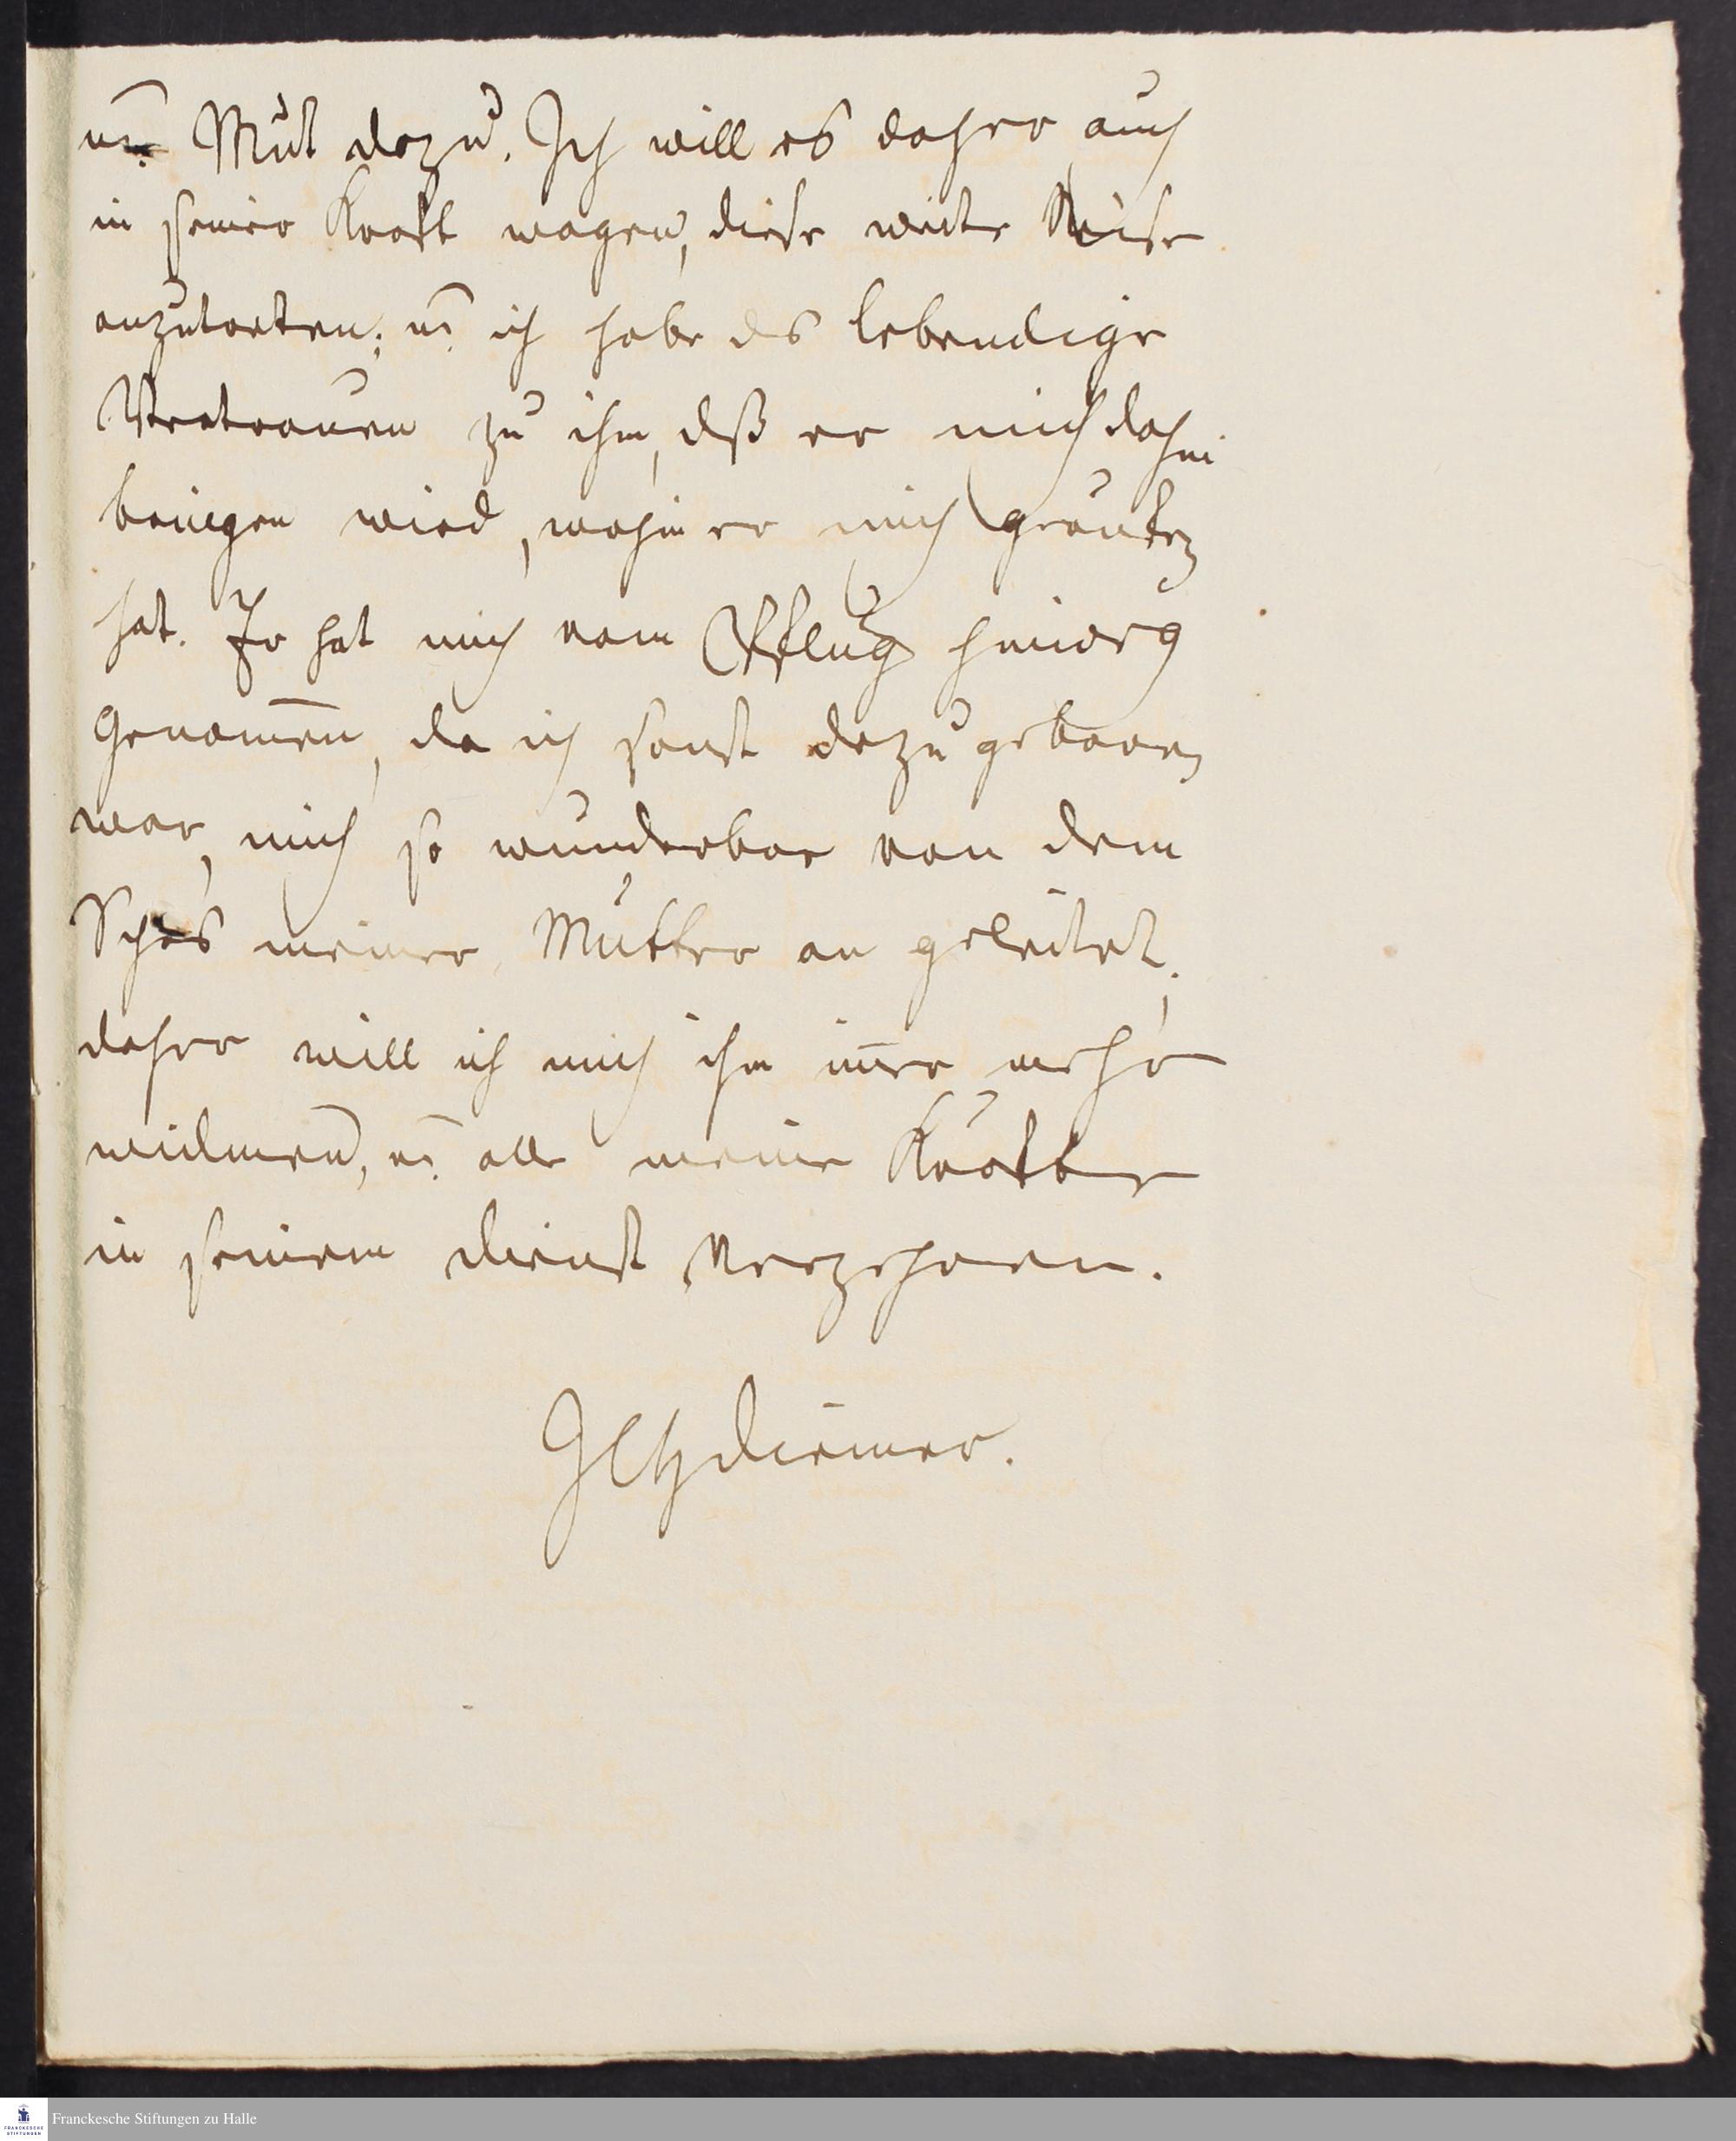 un̄. Mut dazu. Ich will es daher auch
in seiner Kraft wagen, diese weite Reise
anzutreten; un̄. ich habe das lebendige
Vertrauen zu ihm, daß er mich dahin
bringen wird, wohin er mich
hat. Er hat mich vom Pflug hinweg
Genom̄en, da ich sonst dazu gebohren
war, mich so wunderbar von dem
Schos meiner Mutter an geleitet,
daher will ich mich ihm im̄er mehr
widmen, un̄. alle meine Kräfte
in seinem Dienst verzehren.
Diemer.
FRANCKESCHE STIFTUNGEN
Franckesche Stiftungen zu Halle